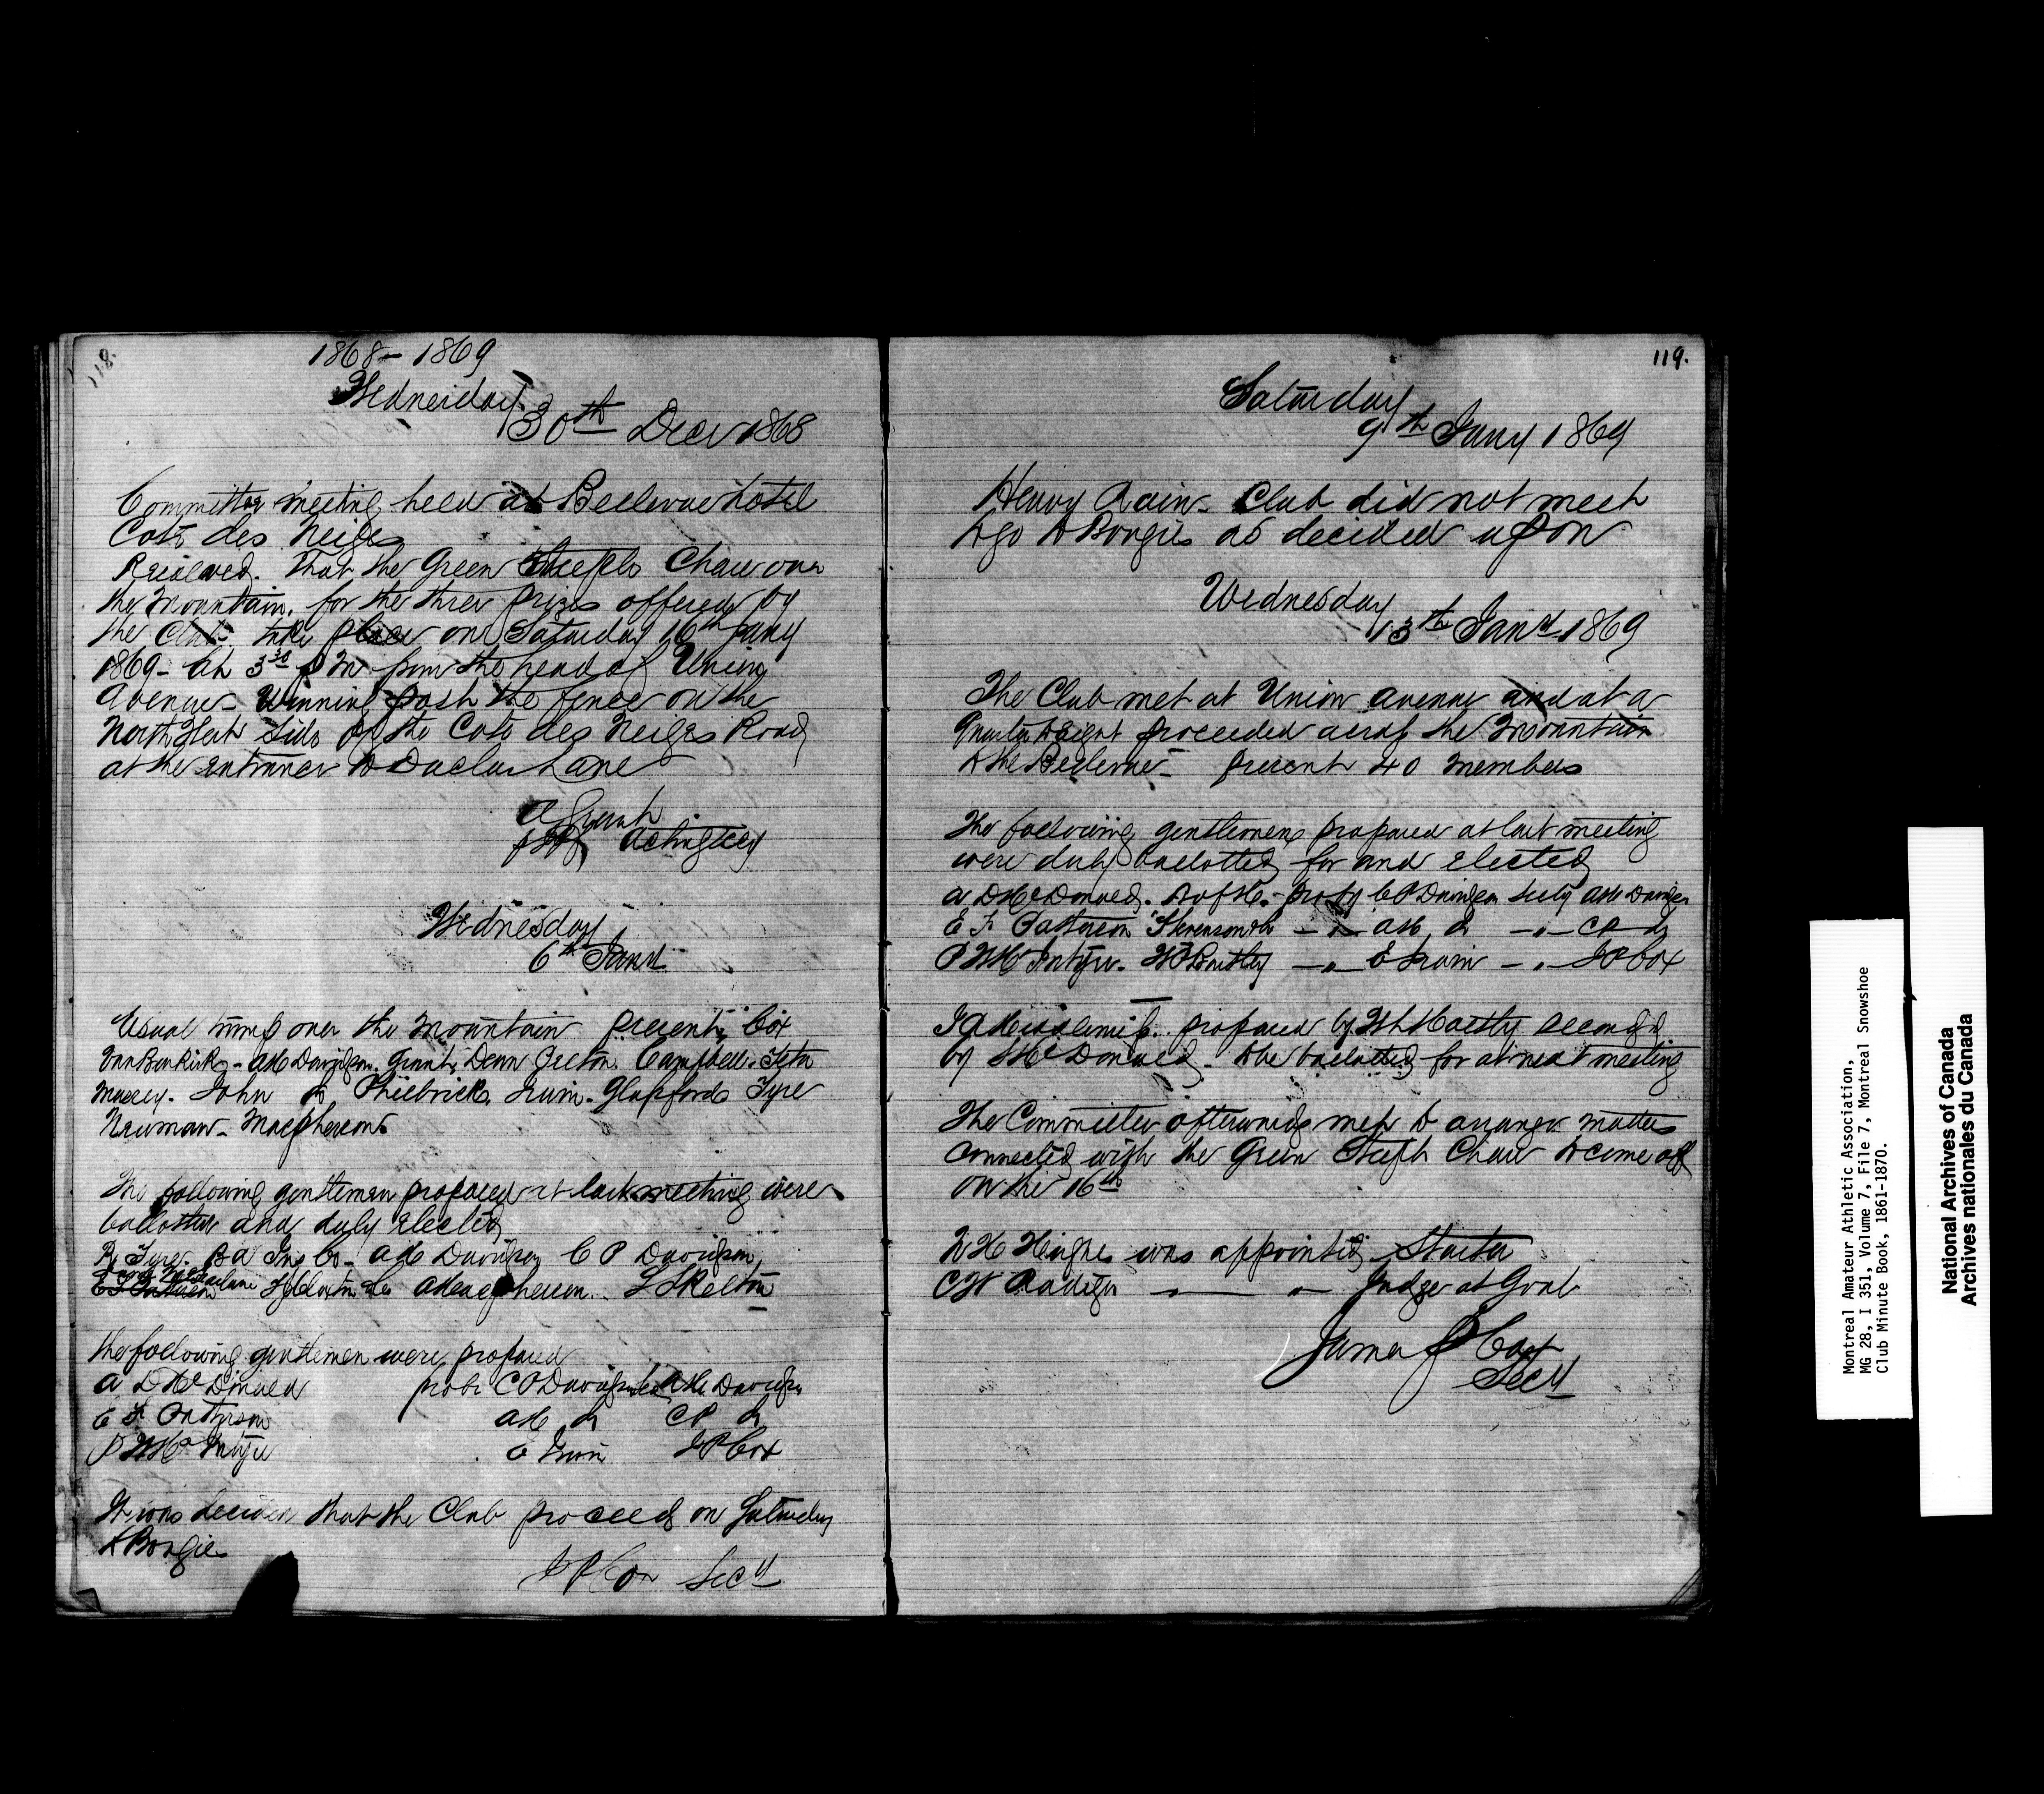 118.
1868 - 1869
Wednesday
30th Decr 1868
Committee meeting held at Bellevue Hotel
Cote des Neiges
Resolved. That the Green Steeple Chase over
the Mountain, for the three prizes offered by
the Club take place on Saturday 16th Jany
1869 - At 3 30 P M from the head of Union
Avenue - Winning post the fence on the
North West Side of the Cote des Neiges Road
at the entrance to Lane
Acting Secy
Wednesday
6th Jany
Usual tramp over the Mountain present, Cox
A McDavidson. Grant, Dean Campbell.
Massey. John do, Philbrick, Irwin - Glassford Tyre
Newman - Macpherson.
The following gentlemen proposed at last meeting were
ballotted and duly elected
R Tyre. B A Ins Co - Davidson C P Davidson
Macfarlane A Macpherson.. L Skelton
the following gentlemen were proposed
A D McDonald probr C P Davidson Davidson
E F Patterson do C P do
P W McIntyre E Irwin J P Cox
It was decided that the Club proceed on Saturday
to Bougies
J P Cox Secy
119.
Saturday
9th Jany 1869
Heavy Rain - Club did not meet
to go to Bougies as decided upon
Wednesday
13th Jany 1869
The Club met at Union Avenue and at a
quarter to eight proceeded across the Mountain
to the Bellevue - present 40 members
The following gentlemen proposed at last meeting
were duly ballotted for and elected
A D McDonald. B of M. - pro by C P Davidson Davidson
E F Patterson - " - do - " - C P do
P W McIntyre. - " - E Irwin - " - J P Cox
proposed by seconded
by McDonald - to be ballotted for at next meeting
The Committee afterwards met to arrange matters
connected with the Green Steeple Chase to come off
on the 16th
Hughes was appointed Starter
C W Radiger - " - " - Judge at Goal
James P Cox
Secy
Montreal Amateur Athletic Association,
MG 28, I 351, Volume 7, File 7, Montreal Snowshoe
Club Minute Book, 1861-1870.
National Archives of Canada
Archives nationales du Canada